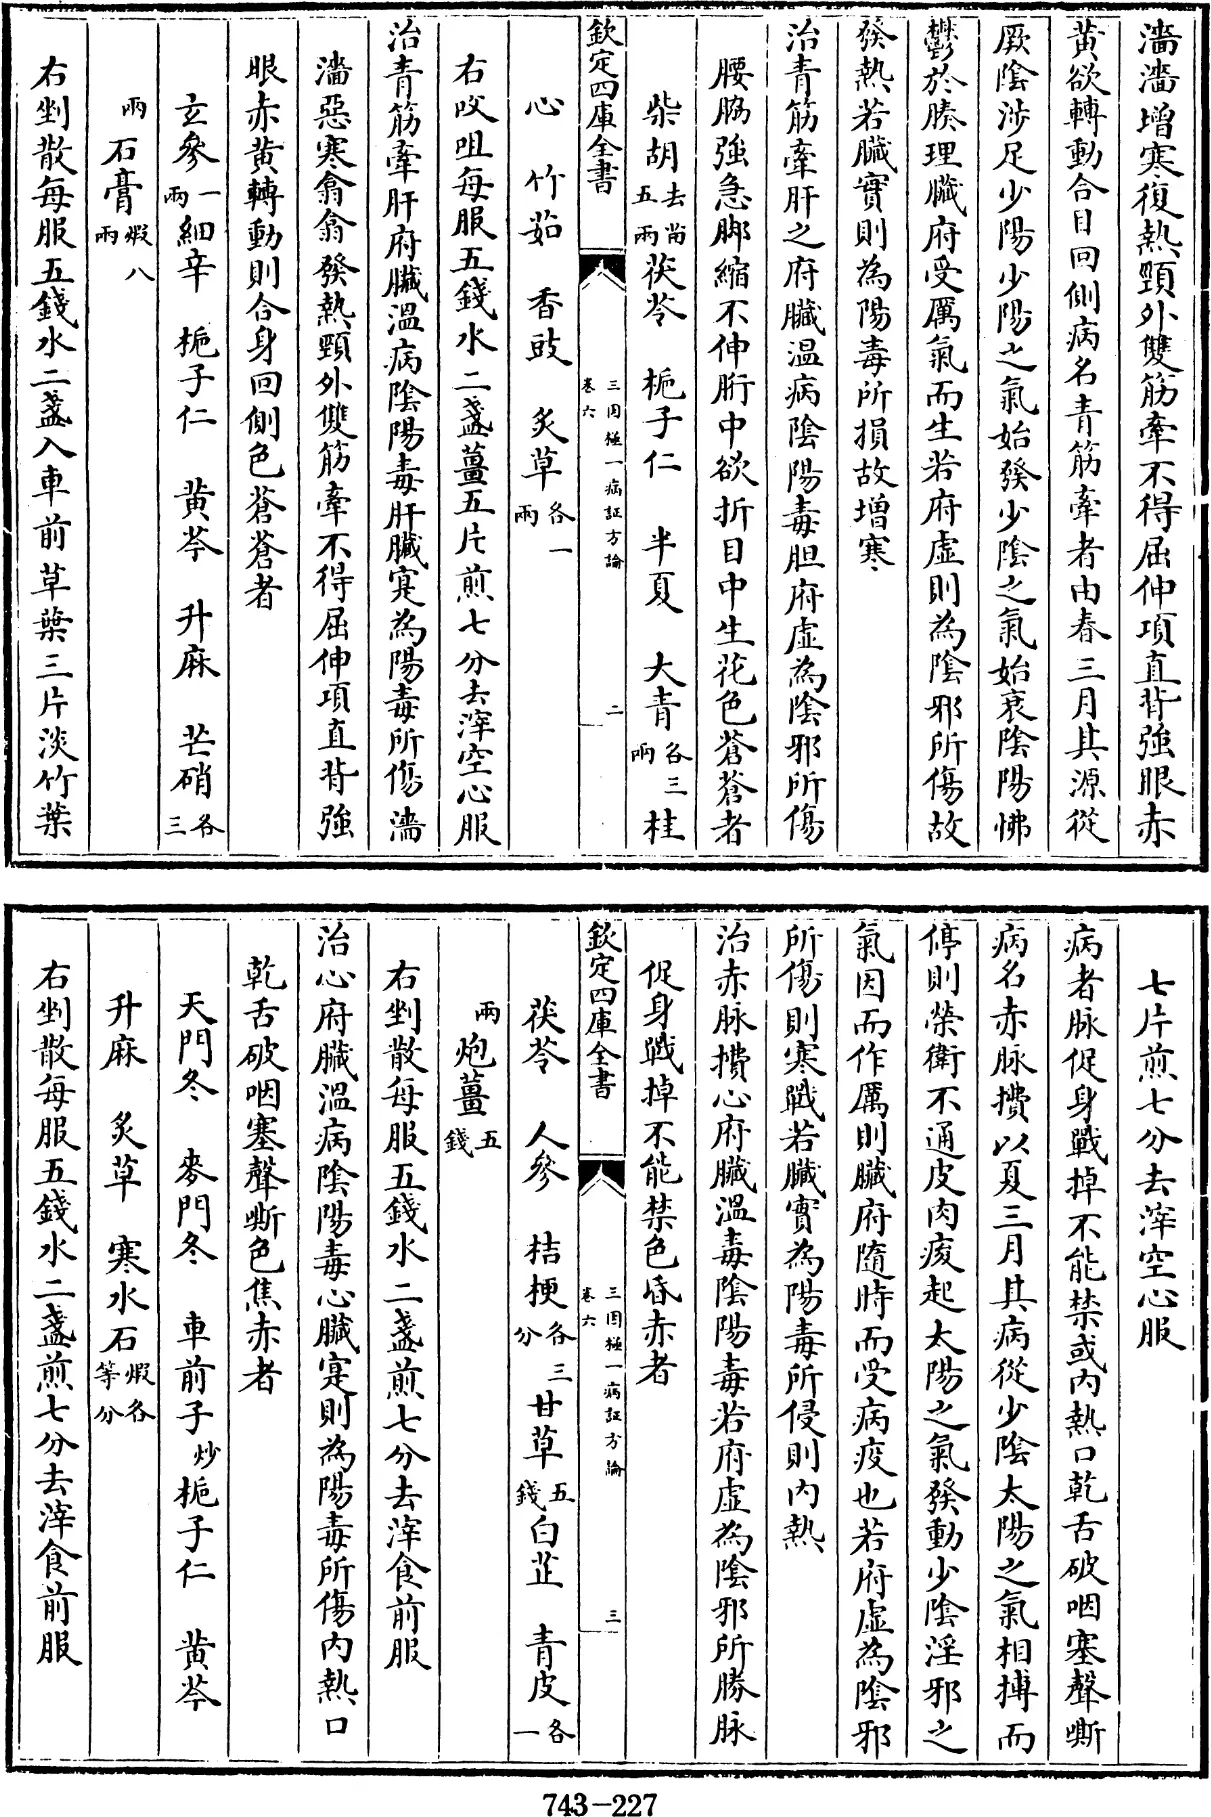 濇濇增寒復熱頸外雙筋牽不得屈伸項直背強眼赤
黄欲轉動合目回側病名青筋牽者由春三月其源從
厥陰涉足少陽少陽之氣始發少陰之氣始衰陰陽怫
鬱於腠理臟府受厲氣而生若府虛則為陰邪所傷故
發熱若臟實則為陽毒所損故增寒
治青筋牽肝之府臟温病陰陽毒胆府虛為陰邪所傷
腰脇強急脚縮不伸䯒中欲折目中生花色蒼蒼者
柴胡去苗五兩茯苓 梔子仁 半夏 大青各三兩桂
欽定四庫全書
三因極一病証方論
卷六
二
心 竹茹 香豉 炙草各一兩
右㕮咀每服五錢水二盞薑五片煎七分去滓空心服
治青筋牽肝府臟温病陰陽毒肝臟寔為陽毒所傷濇
濇惡寒翕翕發熱頸外雙筋牽不得屈伸項直背強
眼赤黄轉動則合身回側色蒼蒼者
玄參一兩細辛 梔子仁 黄芩 升麻 芒硝各三
兩石膏煆八兩
右剉散每服五錢水二盞入車前草葉三片淡竹葉
七片煎七分去滓空心服
病者脉促身戰掉不能禁或内熱口乾舌破咽塞聲嘶
病名赤脉㩌以夏三月其病從少陰太陽之氣相搏而
停則榮衛不通皮肉痠起太陽之氣發動少陰淫邪之
氣因而作厲則臟府隨時而受病疫也若府虛為陰邪
所傷則寒戰若臟實為陽毒所侵則内熱
治赤脉㩌心府臟温毒陰陽毒若府虛為陰邪所勝脉
促身戰掉不能禁色昏赤者
欽定四庫全書
三因極一病証方論
卷六
三
茯苓 人參 桔梗各三分甘草五錢白芷 青皮各一
兩炮薑五錢
右剉散每服五錢水二盞煎七分去滓食前服
治心府臟温病陰陽毒心臟寔則為陽毒所傷内熱口
乾舌破咽塞聲嘶色焦赤者
天門冬 麥門冬 車前子炒梔子仁 黄芩
升麻 炙草 寒水石煆各等分
右剉散每服五錢水二盞煎七分去滓食前服
743-227